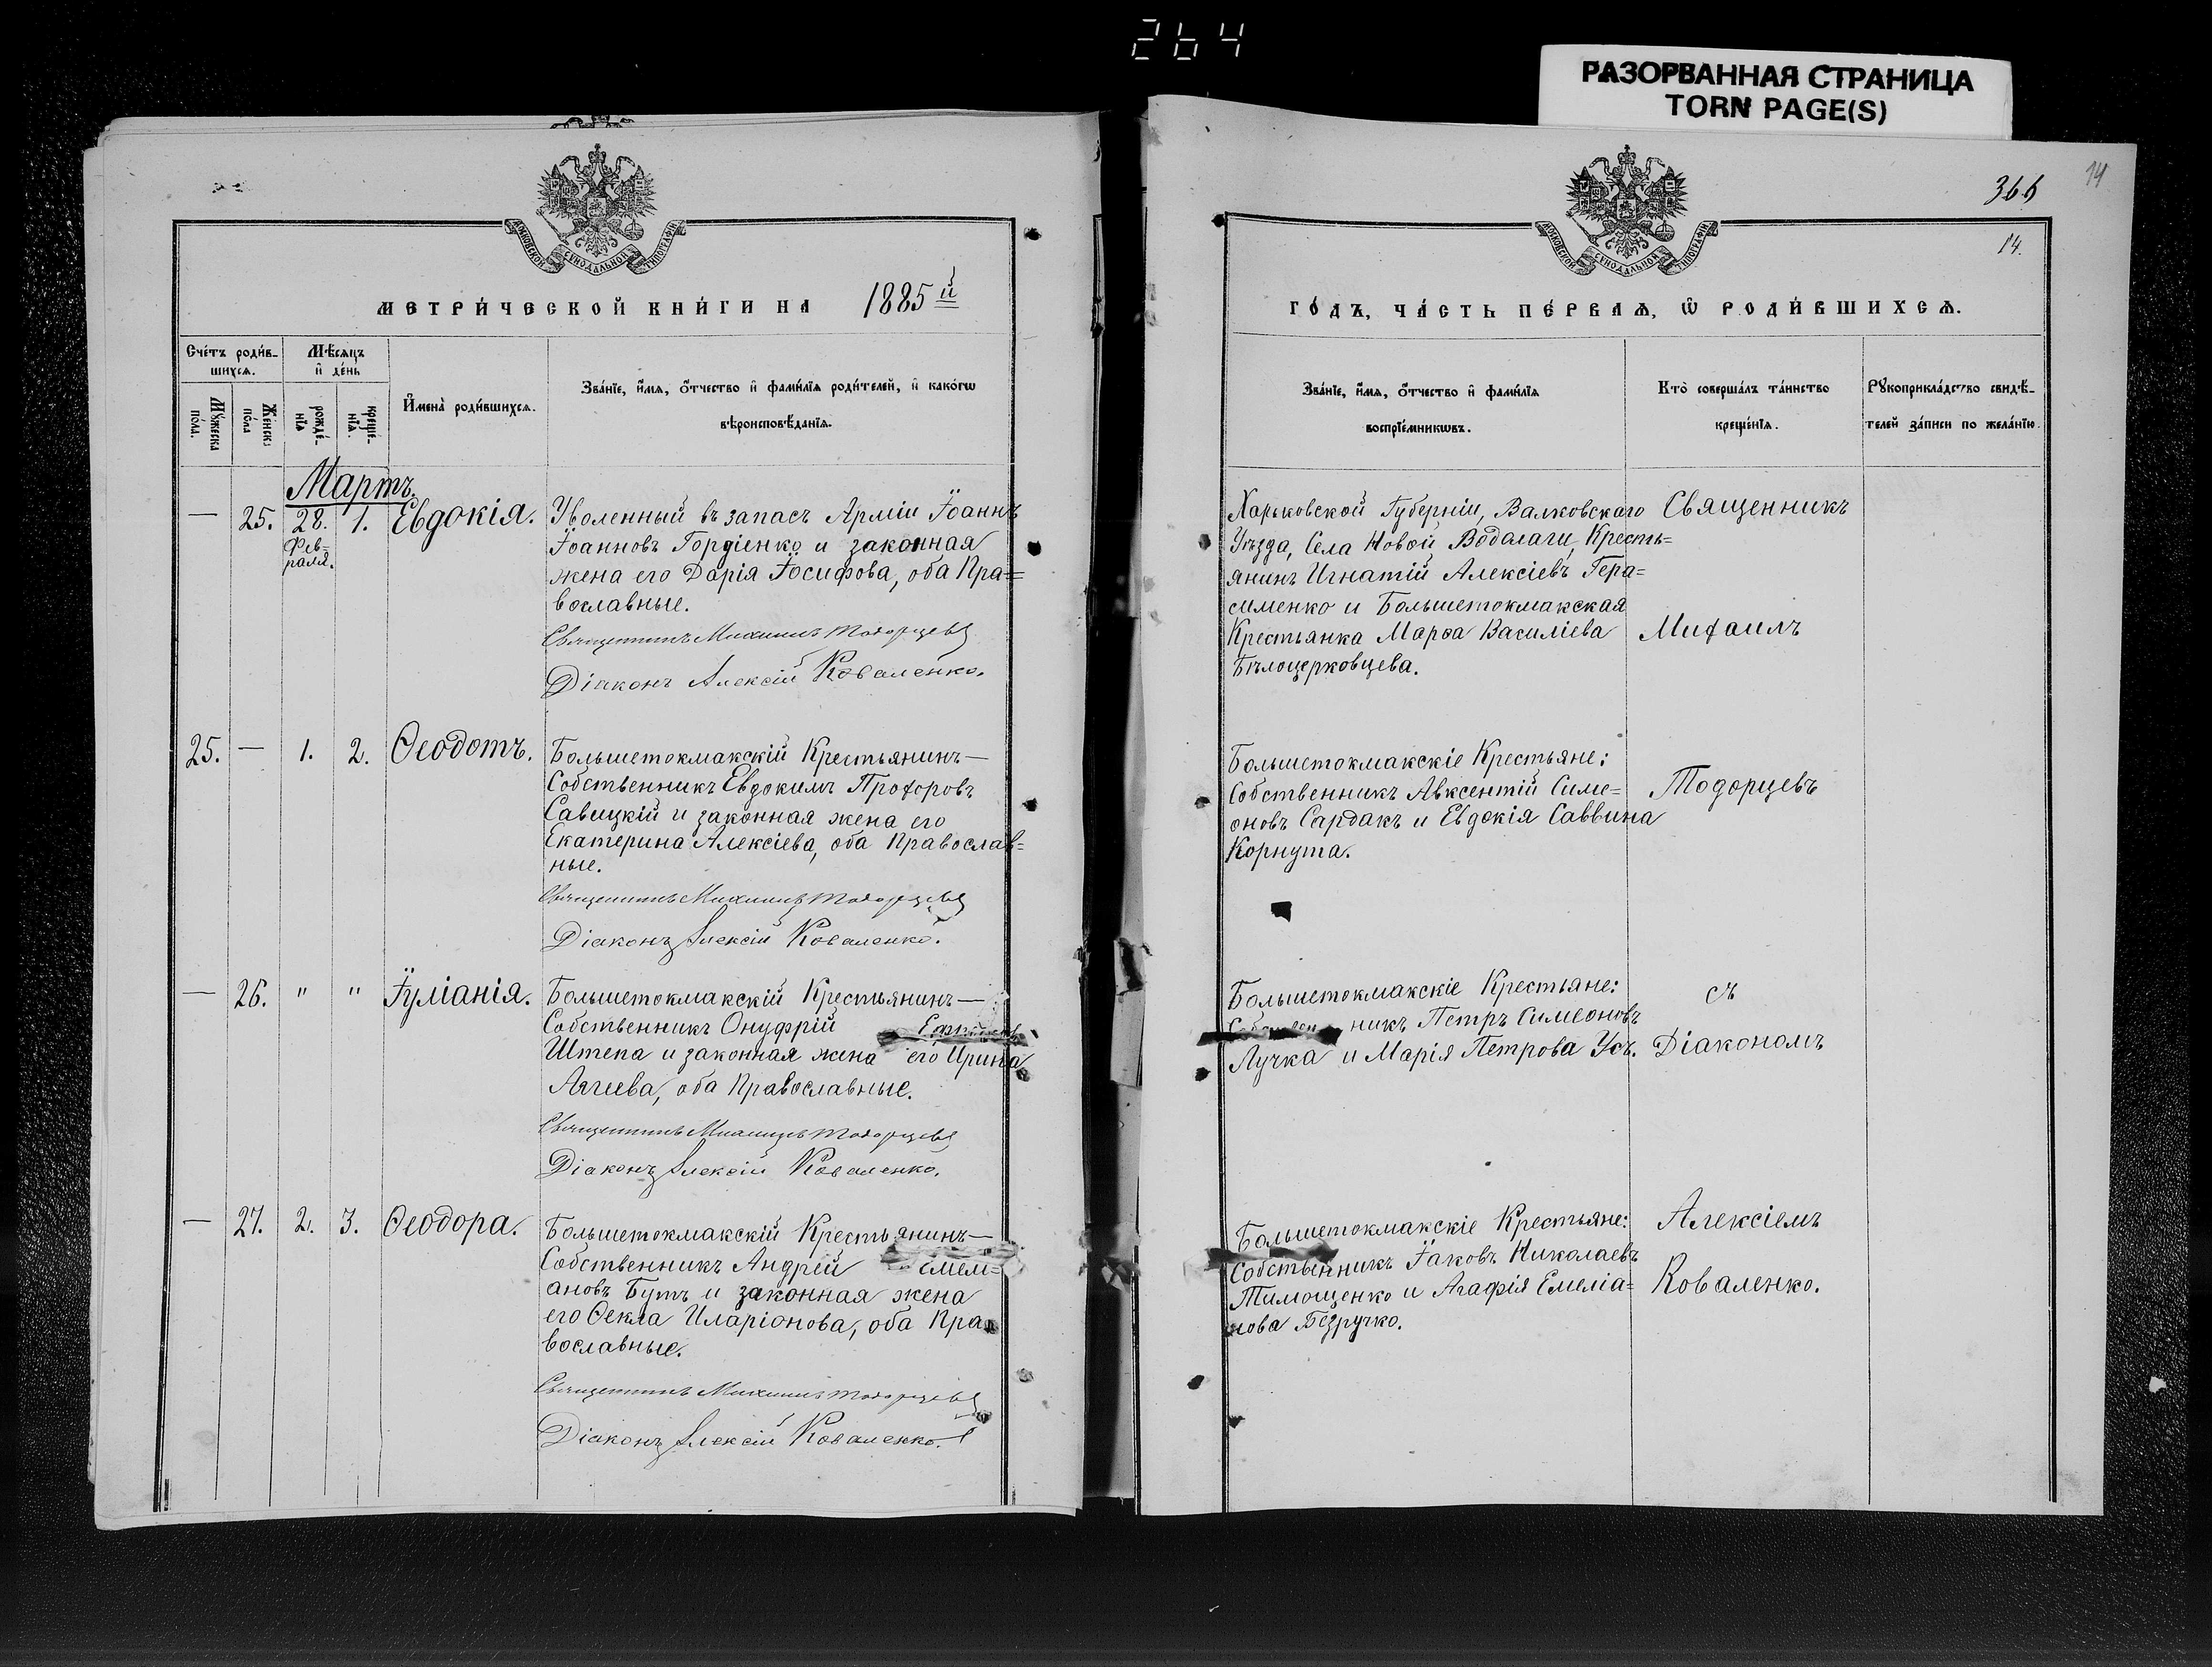 264
РАЗОРВАННАЯ СТРАНИЦА
TORN PAGE(S)
МОСКОВСКОЙ СѴНОДАЛЬНОЙ ТИПОГРАФІИ
МЕТРИ́ЧЕСКОЙ КНИ́ГИ НА 1885й
Сче́тъ роди́в-
шихсѧ.
Мꙋ́жеска
по́ла.
Же́нска
по́ла
Мѣ́сѧцъ
и҆ де́нь
рожде́-
нїѧ
креще́-
нїѧ.
И҆мена̀ роди́вшихсѧ.
Зва́нїе, и҆́мѧ, ѻ҆́тчество и҆ фами́лїѧ роди́телей, и҆ како́гѡ
вѣроисповѣ́данїѧ.
Мартъ.
— 25. 28. 1. Евдокія.
Фев=
раля.
Уволенный въ запасъ Арміи Іоаннъ
Іоанновъ Гордіенко и законная
жена его Дарія Іосифова, оба Пра=
вославные.
Священникъ Михаилъ Тодорцевъ
Діаконъ Алексій Коваленко.
25. — 1. 2. Ѳеодотъ.
Большетокмакскій Крестьянинъ—
Собственникъ Евдокимъ Прохоровъ
Савицкій и законная жена его
Екатерина Алексіева, оба Православ=
ные.
Священникъ Михаилъ Тодорцевъ
Діаконъ Алексій Коваленко.
— 26. " " Іуліанія.
Большетокмакскій Крестьянинъ—
Собственникъ Онуфрій
Штепа и законная жена его Ирина
Аггиева, оба Православные.
Священникъ Михаилъ Тодорцевъ
Діаконъ Алексій Коваленко.
— 27. 2. 3. Ѳеодора.
Большетокмакскій Крестьянинъ—
Собственникъ Андрей
ановъ Бутъ и законная жена
его Ѳекла Иларіонова, оба Пра
вославные.
Священникъ Михаилъ Тодорцевъ
Діаконъ Алексій Коваленко.
14
366
14.
МОСКОВСКОЙ СѴНОДАЛЬНОЙ ТИПОГРАФІИ
ГО́ДЪ, ЧА́СТЬ ПЕ́РВАѦ, Ѡ҆ РОДИ́ВШИХСѦ.
Зва́нїе, и҆́мѧ, ѻ҆́тчество и҆ фами́лїѧ
воспрїе́мникѡвъ.
Кто̀ соверша́лъ та́инство
креще́нїѧ.
Рꙋкоприкла́дство свидѣ́-
телей за́писи по жела́нїю.
Харьковской Губерніи, Валковскаго
Уѣзда, Села Новой Водалаги, Кресть=
янинъ Игнатій Алексіевъ Гера=
сименко и Большетокмакская
Крестьянка Марѳа Василіева
Бѣлоцерковцева.
Большетокмакскіе Крестьяне:
Собственникъ Авксентій Симе=
оновъ Сардакъ и Евдокія Саввина
Корнута.
Большетокмакскіе Крестьяне:
Собственникъ Петръ Симеоновъ
Лучка и Марія Петрова Усъ.
Большетокмакскіе Крестьяне:
Собственникъ Іаковъ Николаевъ
Тимощенко и Агафія Емеліа=
нова Безручко.
Священникъ
Михаилъ
Тодорцевъ
съ
Діакономъ
Алексіемъ
Коваленко.